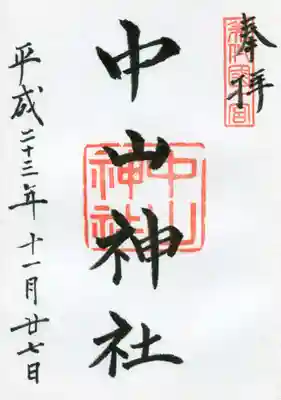 奉拝
中山神社
平成二十三年十一月廿七日
中山
神社